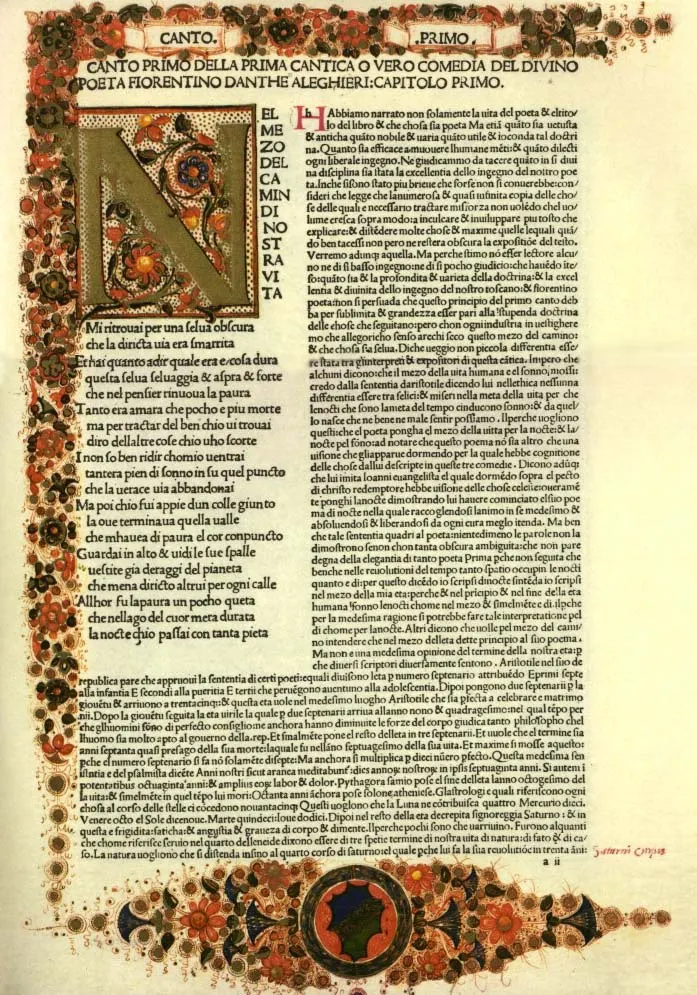 CANTO. .PRIMO.
CANTO PRIMO DELLA PRIMA CANTICA O VERO COMEDIA DEL DIVINO
POETA FIORENTINO DANTHE ALEGHIERI: CAPITOLO PRIMO.
N
EL
MEZO
DEL
CA
MIN
DI
NO
ST
RA
VI
TA
Mi ritrouai per una selua obscura
che la diricta uia era smarrita
Et hai quanto adir quale era e cosa dura
questa selua seluaggia & aspra & forte
che nel pensier rinuoua la paura
Tanto era amara che pocho e piu morte
ma per tractar del ben chio ui trouai
diro dellaltre cose chio uho scorte
I non so ben ridir chomio uentrai
tantera pien di sonno in su quel puncto
che la uerace uia abbandonai
Ma poi chio fui appie dun colle giunto
la oue terminaua quella ualle
che mhauea di paura el cor conpuncto
Guardai in alto & uidi le sue spalle
uestite gia deraggi del pianeta
che mena diricto altrui per ogni calle
Allhor fu la paura un pocho queta
che nellago del cuor mera durata
la nocte chio passai con tanta pieta
HAbbiamo narrato non solamente la uita del poeta & eltito/
lo del libro & che chosa sia poeta Ma etiã quãto sia uetusta
& anticha quãto nobile & uaria quãto utile & ioconda tal doctri
na. Quanto sia efficace a muouere lhumane mẽti: & quãto dilecti
ogni liberale ingegno. Ne giudicammo da tacere quãto in si diui
na disciplina sia stata la excellentia dello ingegno del nostro poe
ta. Inche sisono stato piu brieue che forse non si conuerebbe: con/
sideri che legge che lanumerosa & quasi infinita copia delle cho/
se delle quali e necessario tractare misforza non uolẽdo chel uo/
lume cresca sopra modo: a inculcare & inuiluppare piu tosto che
explicare: & distẽdere molte chose & maxime quelle lequali quã/
do ben tacessi non pero ne restera obscura la expositiõe del testo.
Verremo adunqȝ aquella. Ma perche stimo nõ esser lectore alcu/
no ne di si basso ingegno: ne di si pocho giudicio: che hauẽdo ite/
so: quãto sia & la profondita & uarieta della doctrina: & la excel
lentia & diuinita dello ingegno del nostro toscano: & fiorentino
poeta: non si persuada che questo principio del primo canto deb
ba per sublimita & grandezza esser pari alla stupenda doctrina
delle chose che seguitano: pero chon ogni industria inuestighere
mo che allegoricho senso arechi seco questo mezo del camino:
& che chosa sia selua. Diche ueggio non piccola differentia esse/
re stata tra glinterpreti & expositori di questa cãtica. Impero che
alchuni dicono: che il mezo della uita humana e el sonno, mossi:
credo dalla sententia daristotile dicendo lui nellethica nessunna
differentia essere tra felici: & miseri nella meta della uita per che
lenocti che sono lameta del tempo cinducono sonno: & da quel/
lo nasce che ne bene ne male sentir possiamo. Ilperche uogliono
questi: che el poeta pongha el mezo della uitta per la nocte: & la
nocte pel sõno: ad notare che questo poema nõ sia altro che una
uisione che gliapparue dormendo per la quale hebbe cognitione
delle chose dallui descripte in queste tre comedie. Dicono adũqȝ
che lui imita Ioanni euangelista el quale dormẽdo sopra el pecto
di christo redemptore hebbe uisione delle chose celeste: oueramẽ
te ponghi lanocte dimostrando lui hauere cominciato elsuo poe
ma di nocte nella quale raccogliendosi lanimo in se medesimo &
absoluendosi & liberandosi da ogni cura meglo itenda. Ma ben
che tale sententia quadri al poeta: nientedimeno le parole non la
dimostrono senon chon tanta obscura ambiguita: che non pare
degna della elegantia di tanto poeta Prima pche non seguita che
benche nelle reuolutioni del tempo tanto spatio occupin le nocti
quanto e di: per questo dicẽdo io scripsi dinocte sintẽda io scripsi
nel mezo della mia eta: perche & nel pricipio & nel fine della eta
humana sonno lenocti chome nel mezo & similmẽte e di. Ilpche
per la medesima ragione si potrebbe fare tale interpretatione pel
di chome per lanocte. Altri dicono che uolle pel mezo del cami/
no intendere che nel mezo delleta dette principio al suo poema.
Ma non e una medesima opinione del termine della nostra eta: p
che diuersi scriptori diuersamente sentono. Aristotile nel suo de
republica pare che appruoui la sententia di certi poeti: equali diuisono leta p numero septenario attribuẽdo Eprimi septe
alla infantia E secondi alla pueritia E tertii che peruẽgono auentuno alla adolescentia. Dipoi pongono due septenarii p la
giouẽtu & arriuono a trentacinqȝ: & questa eta uole nel medesimo luogho Aristotile che sia pfecta a celebrare e matrimo
nii. Dopo la giouẽtu seguita la eta uirile la quale p due septenarii arriua allanno nono & quadragesimo: nel qual tẽpo per
che glhuomini sono di perfecto consiglio: ne anchora hanno diminuite le forze del corpo giudica tanto philosopho chel
lhuomo sia molto apto al gouerno della .rep. Et finalmẽte pone el resto delleta in tre septenarii. Et uuole che el termine sia
anni septanta quasi presago della sua morte: laquale fu nellãno septuagesimo della sua uita. Et maxime si mosse aquesto:
pche el numero septenario si fa nõ solamẽte disepte: Ma anchora si multiplica p dieci nũero pfecto. Questa medesima sen
tentia e del psalmista dicẽte Anni nostri sicut aranea meditabunt: dies annoꝝ nostroꝝ in ipsis septuaginta anni. Si autem i
potentatibus octuaginta anni: & amplius eoꝝ labor & dolor. Pythagora samio pose el fine delleta lanno octogesimo del
la uita: & similmẽte in quel tẽpo lui mori: Octanta anni ãchora pose solone atheniese. Glastrologi e quali riferiscono ogni
chosa al corso delle stelle ci cõcedono nouantacinqȝ Questi uogliono che la Luna ne cõtribuisca quattro Mercurio dieci.
Venere octo el Sole dicenoue. Marte quindeci: Ioue dodici. Dipoi nel resto della eta decrepita signoreggia Saturno: & in
questa e frigidita: saticha: & angustia & graueza di corpo & dimente. Ilperche pochi sono che uarriuino. Furono alquanti
che chome riferisce seruio nel quarto delleneide dixono essere di tre spetie termine di nostra uita di natura: di fato & di ca/
so. La natura uogliono che si distenda insino al quarto corso di saturno: el quale pche lui fa la sua reuolutiõe in trenta ãni:
a ii